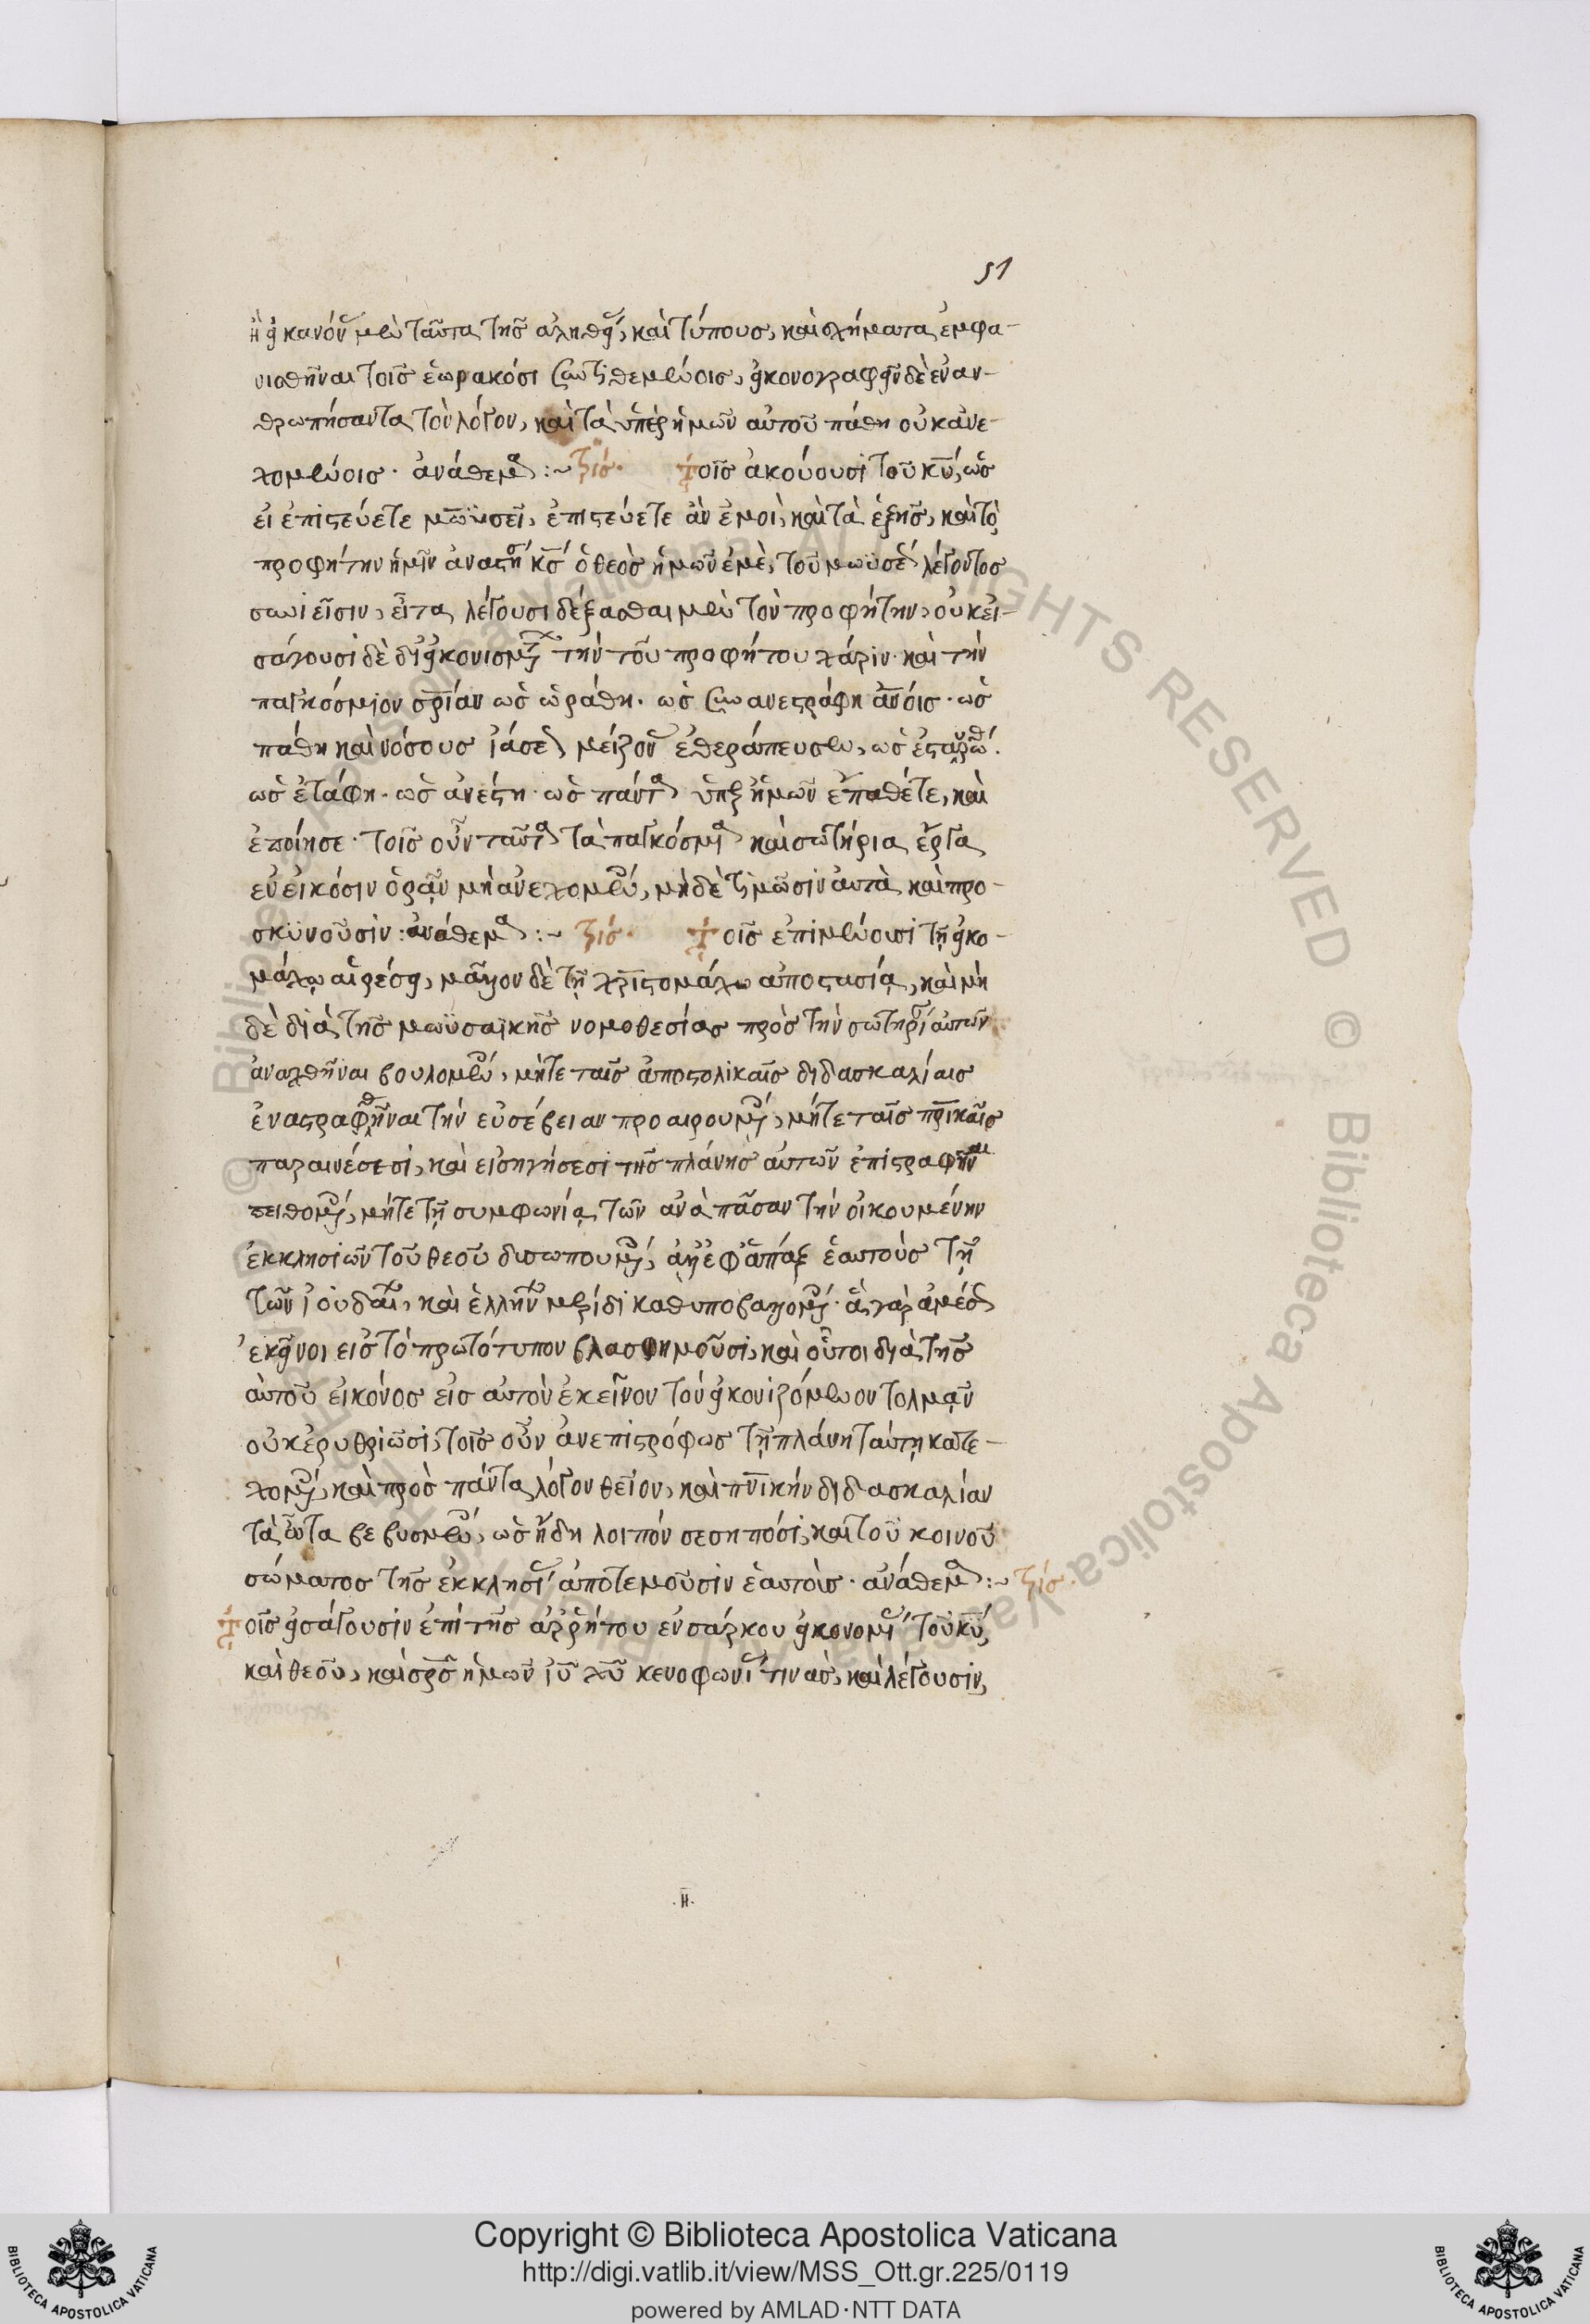 51
ἢ εἰκανόν μὲν ταῦτα τῆς ἀληθεί, καὶ τύπους, καὶ σχήματα ἐμφα-
νισθῆναι τοῖς ἑωρακόσι συντιθεμένοις, εἰκονογραφεῖν δὲ ἐναν-
θρωπήσαντα τὸν λόγον, καὶ τὰ ὑπὲρ ἡμῶν αὐτοῦ πάθη οὐκ ἀνε-
χομένοις· ἀνάθεμα :~ τρίς· Τοῖς ἀκούουσι τοῦ κυ, ὡς
εἰ ἐπιστεύετε μωϋσεῖ, ἐπιστεύετε ἂν ἐμοί, καὶ τὰ ἑξῆς, καὶ τὸ
προφήτην ἡμῖν ἀναστή κς ὁ θεὸς ἡμῶν ἐμὲ, τοῦ μωϋσέ λέγοντος
συνιεῖσιν, εἶτα λέγουσι δέξασθαι μὲν τὸν προφήτην, οὐκ εἰ-
σάγουσι δὲ δι εἰκονισμ τὴν τοῦ προφήτου χάριν· καὶ τὴν
παγκόσμιον σριαν ὡς ὡράθη· ὡς συνανεστράφη ανοις· ὡς
πάθη καὶ νόσους ἰάσε μείζον ἐθεράπευσεν, ὡς ἐσταρώθ·
ὡς ἐτάφη· ὡς ἀνέστη· ὡς πάντα ὑπερ ἡμῶν ἔπαθέτε, καὶ
ἐποίησε· τοῖς οὖν ταῦτα τὰ παγκόσμια καὶ σωτήρια ἔργα
ἐν εἰκόσιν ὁρᾷν μὴ ἀνεχομέν, μὴ δὲ τιμῶσιν αὐτὰ καὶ προ-
σκυνοῦσιν: ἀνάθεμα :~ τρίς· Τοῖς ἐπιμένουσι τῇ εἰκο-
μάχῳ αἱρέσει, μᾶλλον δὲ τῇ χριστομάχω ἀποστασίᾳ, καὶ μὴ
δὲ διὰ τῆς μωϋσαϊκῆς νομοθεσίας πρὸς τὴν σωτηρί αὐτῶν
ἀναχθῆναι βουλομέν, μήτε ταῖς ἀποστολικαῖς διδασκαλίαις
ἐναστραφθῆναι τὴν εὐσέβειαν προαιρουμέν, μήτε ταῖς πρικαῖς
παραινέσεσι, καὶ εἰσηγήσεσι τῆς πλάνης αὐτῶν ἐπιστραφῆναι
πειθομέν, μήτε τῇ συμφωνίᾳ τῶν ἀνὰ πᾶσαν τὴν οἰκουμένην
ἐκκλησιῶν τοῦ θεοῦ δυσωπουμέν, ἀλλ ἐφάπαξ ἑαυτοὺς τῇ
τῶν ἰουδαί, καὶ ἑλλήν μερίδι καθυποβαλλομέν· ἃ γὰρ ἀμέσ
ἐκεῖνοι εἰς τὸ πρωτότυπον βλασφημοῦσι, καὶ οὗτοι διὰ τῆς
αὐτοῦ εἰκόνος εἰς αὐτὸν ἐκεῖνον τὸν εἰκονιζόμενον τολμᾷν
οὐκ ἐρυθριῶσι, τοῖς οὖν ἀνεπιστρόφως τῇ πλάνῃ ταύτῃ κατε-
χομέν, καὶ πρὸς πάντα λόγον θεῖον, καὶ πνικὴν διδασκαλίαν
τὰ ὦτα βεβυσμέν, ὡς ἤδη λοιπόν σεσηπόσι, καὶ τοῦ κοινοῦ
σώματος τῆς ἐκκλησί ἀποτεμοῦσιν ἑαυτούς· ἀνάθεμα :~ τρίς·
Τοῖς εἰσάγουσιν ἐπὶ τῆς ἀῤῥήτου ἐνσάρκου εἰκονομί τοῦ κυ,
καὶ θεοῦ, καὶ σρς ἡμῶν ιυ χυ κενοφωνί τινάς, καὶ λέγουσιν,
·η·
© Biblioteca Apostolica Vaticana ALL RIGHTS RESERVED © Biblioteca Apostolica Vaticana
Copyright © Biblioteca Apostolica Vaticana
http://digi.vatlib.it/view/MSS_Ott.gr.225/0119
powered by AMLAD·NTT DATA
BIBLIOTECA APOSTOLICA VATICANA
BIBLIOTECA APOSTOLICA VATICANA